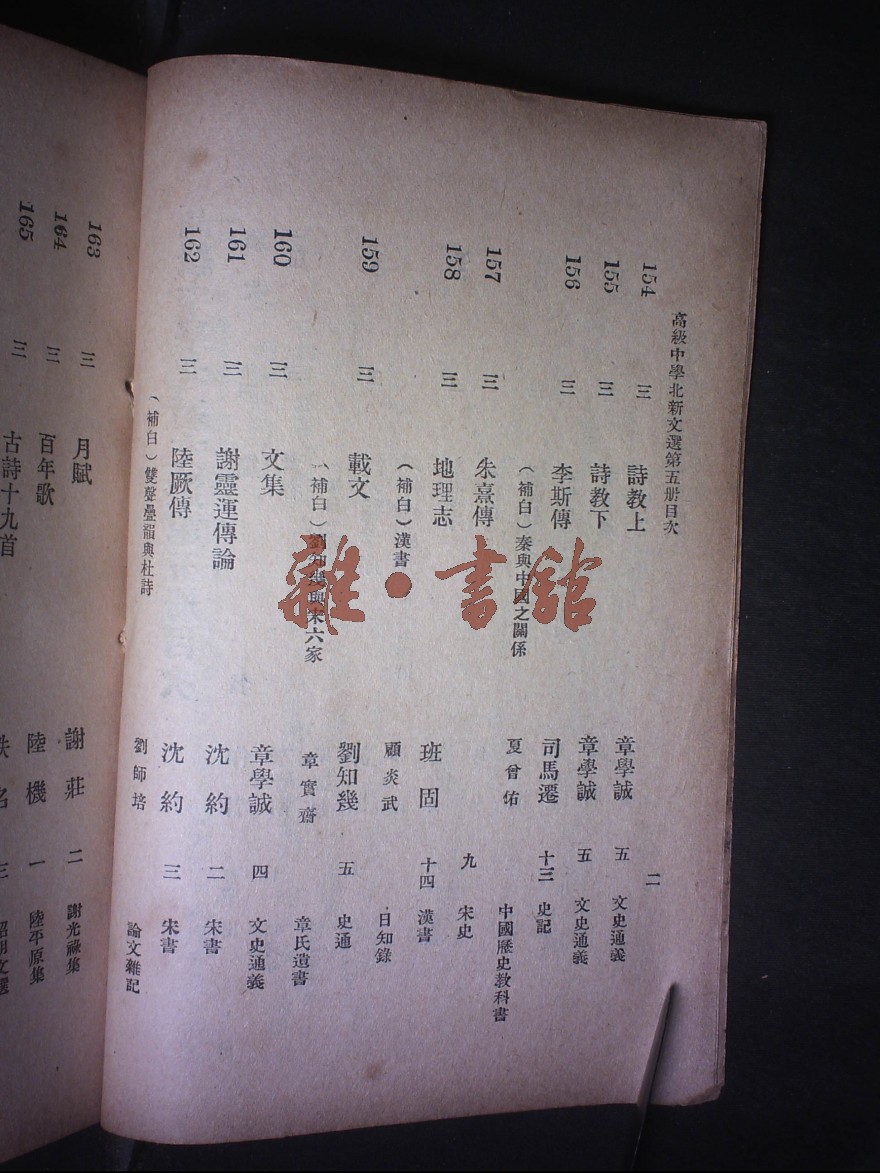 高級中學北新文選第五册目次 二
154 三 詩教上 章學誠 五 文史通義
155 三 詩教下 章學誠 五 文史通義
156 三 李斯傳 司馬遷 十三 史記
(補白)秦與中國之關係 夏曾佑 中國歷史教科書
157 三 朱熹傳 九 宋史
158 三 地理志 班固 十四 漢書
(補白)漢書 顧炎武 日知錄
159 三 載文 劉知幾 五 史通
(補白)劉知幾與宋六家 章實齋 章氏遺書
160 三 文集 章學誠 四 文史通義
161 三 謝靈運傳論 沈約 二 宋書
162 三 陸厥傳 沈約 三 宋書
(補白)雙聲疊韻與杜詩 劉師培 論文雜記
163 三 月賦 謝莊 二 謝光祿集
164 三 百年歌 陸機 一 陸平原集
165 三 古詩十九首 名 三
雜·書館